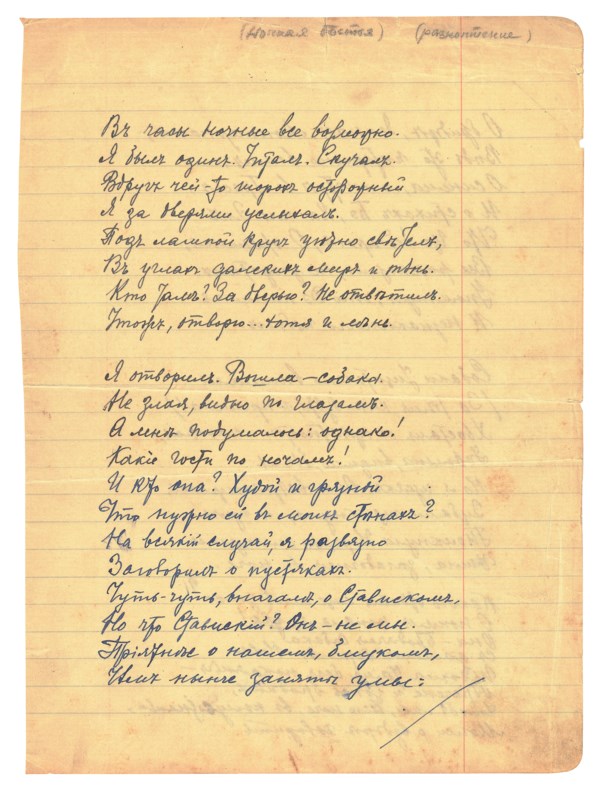 (Ночная гостья) (разночтение)
Въ часы ночные все возможно.
Я былъ одинъ. Читалъ. Скучалъ.
Вдругъ чей-то шорохъ осторожный
Я за дверями услыхалъ.
Подъ лампой кругъ уютно свѣтелъ,
Въ углахъ и тѣнь.
Кто тамъ? За дверью? Не отвѣтилъ.
Чтожъ, отворю... хотя и лѣнь.
Я отворилъ. Вошла – собака.
Не злая, видно по глазамъ.
А мнѣ подумалось: однако!
Какіе гости по ночамъ!
И кто она? Худой и грязной
Что нужно ей въ моихъ стѣнахъ?
На всякій случай, я развязно
Заговорилъ о пустякахъ.
Чуть-чуть, вначалѣ, о Ставискомъ,
Но что Ставискій? Онъ – не мы.
Пріятнѣе о нашемъ, близкомъ,
Чѣмъ нынче заняты умы: